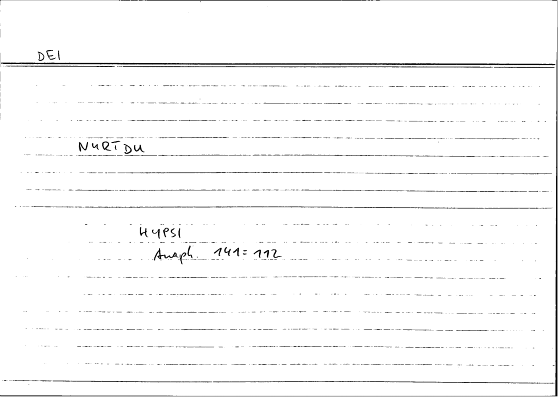 DEI
NURTDU
HYPSI
Anaph 141= 112